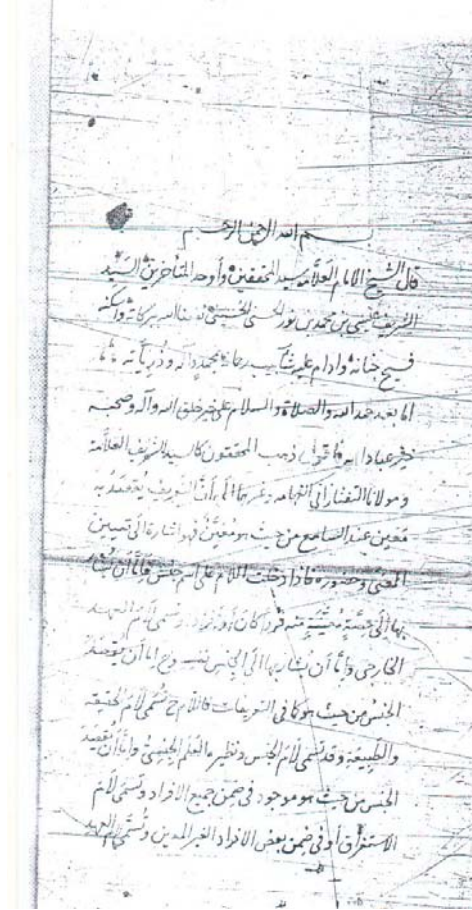 بسم الله الرحمن الرحيم
قال الشيخ الامام العلامه سيد المحققين وأوحد المتأخرين السيد
الشريف عيسى بن محمد بن نور الحسنى الحسينى نفعنا الله ببركاته وأسكنه
فسيح جنانه وادام عليه بسيدنا محمد وآله وذرياته
اما بعد حمد الله والصلاة والسلام على خير خلق الله وآله وصحبه
خير عباد الله فاقول ذهب المحققون كالسيد الشريف العلامة
ومولانا التفتازانى الفهامه وغيرهما الى أن التعريف يقصد به
معين عند السامع من حيث هو معين فهو اشارة الى تعيين
المعنى وحضوره فاذا دخلت اللام على اسم جنس فاما أن يشار
بها الى حصة معينة منه فردا كان أو أفرادا وتسمى لام العهد
الخارجى واما أن يشار بها الى الجنس نفسه وح اما أن يقصد
الجنس من حيث هو كما فى التعريفات فاللام ح تسمى لام الحقيقه
والطبيعه وقد تسمى لام الجنس ونظيره العلم الجنسى واما أن يقصد
الجنس من حيث هو موجود فى ضمن جميع الافراد وتسمى لام
الاستغراق أو فى ضمن بعض الافراد الغير المعين وتسمى لام العهد